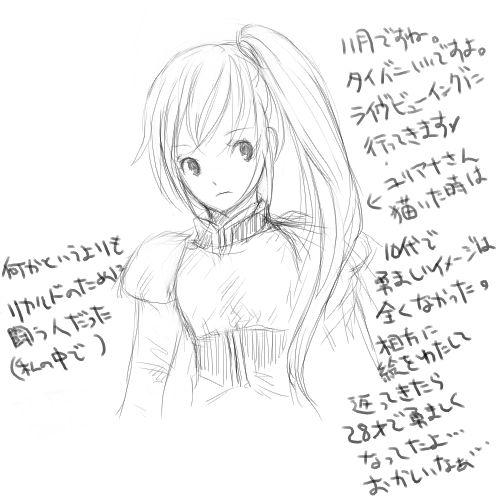 11月ですね。
タイバニいいですよ。
ライヴビューイングに
行ってきます
ユリマナさん
描いた時は
10代で
勇ましいイメージは
全くなかった。
相方に
絵をわたして
返ってきたら
28才で勇ましく
なってたよ…
おかしいなぁ…
何かというよりも
リカルドのために
闘う人だった
(私の中で)